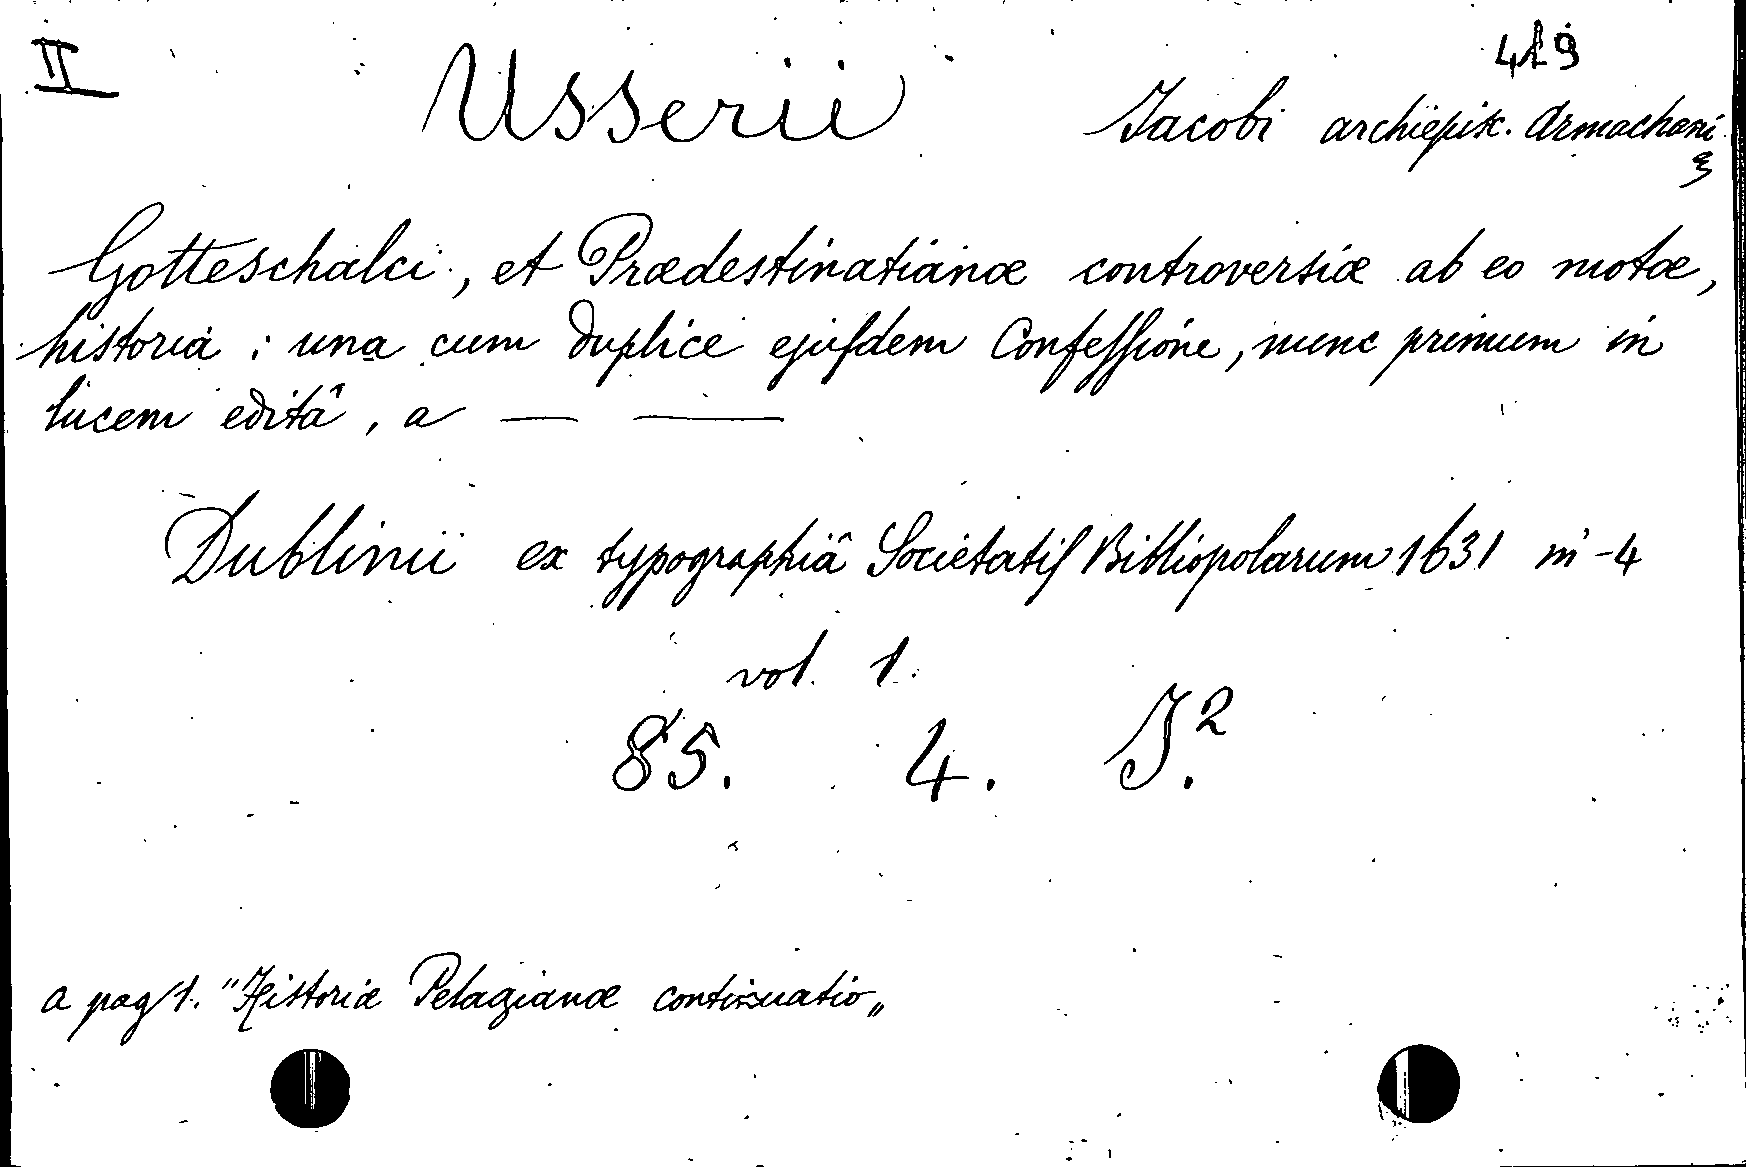 II
419
Usserii Jacobi archiepisc. Armachani
Gotteschalci, et Prædestinatianæ controversiæ ab eo motæ,
historia : una cum duplice ejuſdem Confeſſione, nunc primum in
lucem editâ, a — ——
Dublinii ex typographiâ Societatiſ Bibliopolarum 1631 in-4
vol. 1.
85. 4. J.²
a pag 1. "Historiæ Pelagianæ continuatio„